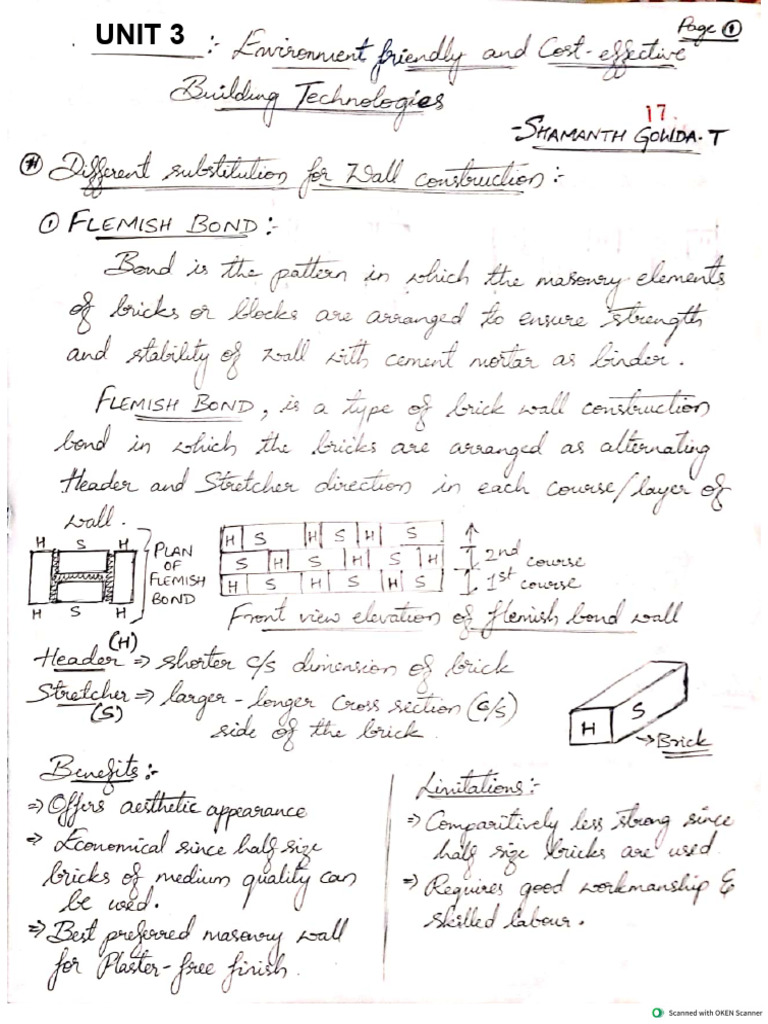 Page ①
UNIT 3 :- Environment friendly and Cost-effective
Building Technologies
17.
-SHAMANTH GOWDA.T
Different substitution for Wall construction:-
① FLEMISH BOND:-
Bond is the pattern in which the masonry elements
of bricks or blocks are arranged to ensure strength
and stability of wall with cement mortar as binder.
FLEMISH BOND, is a type of brick wall construction
bond in which the bricks are arranged as alternating
Header and Stretcher direction in each course/layer of
wall.
H S H
H S H
PLAN
OF
FLEMISH
BOND
H S H S H S
S H S H S H
H S H S H S
2nd course
1st course
Front view elevation of flemish bond wall
Header (H) => shorter c/s dimension of brick
Stretcher (S) => larger-longer Cross section (c/s)
side of the brick.
H S
→Brick
Benefits:-
=> Offers aesthetic appearance
=> Economical since half size
bricks of medium quality can
be used.
=> Best preferred masonry wall
for Plaster-free finish.
Limitations:-
=> Comparitively less strong since
half size bricks are used.
=> Requires good workmanship &
skilled labour.
Scanned with OKEN Scanner